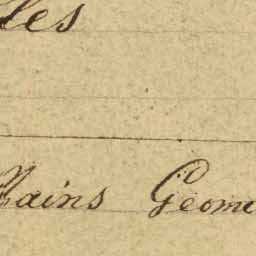 les
Plains Geome